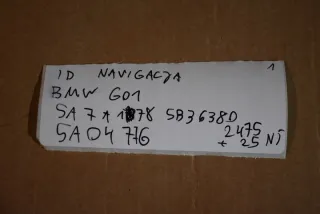 1
ID NAVIGACJA
BMW G01
5A7A178 5B3638D
5A04776 2475
+ 25 NJ